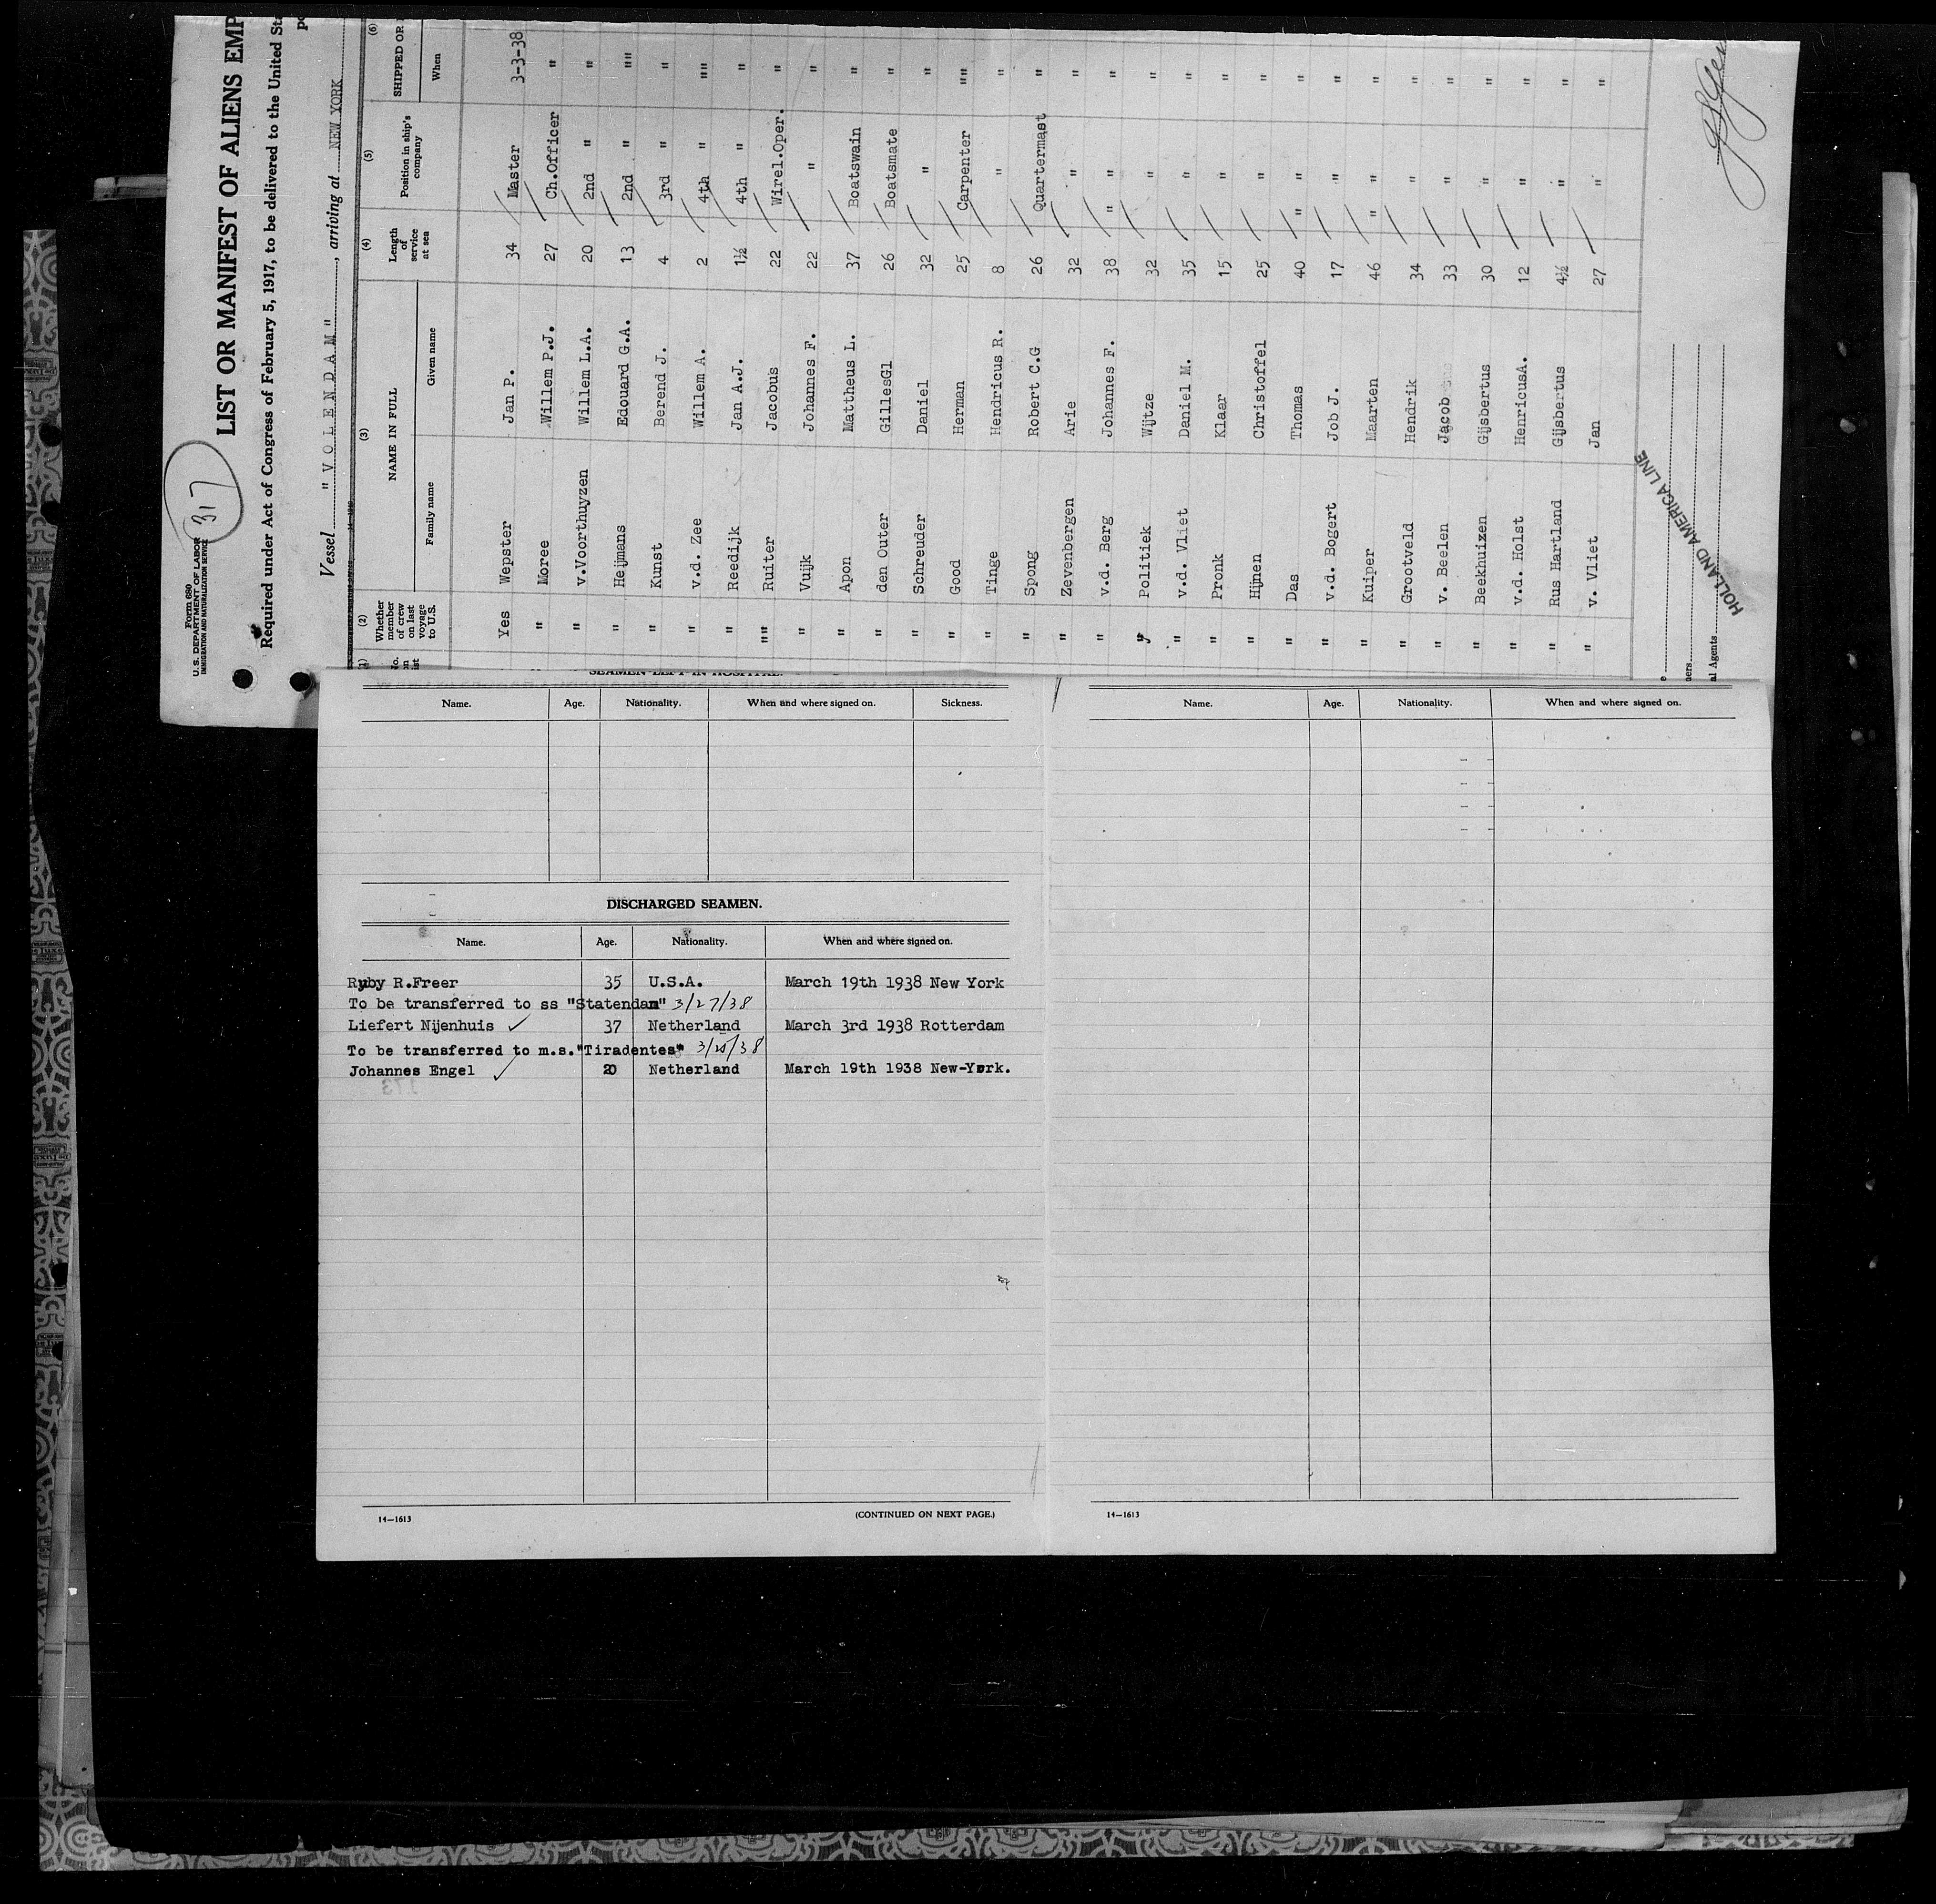 Form 680
U.S. DEPARTMENT OF LABOR
IMMIGRATION AND NATURALIZATION SERVICE
317
LIST OR MANIFEST OF ALIENS EMP
Required under Act of Congress of February 5, 1917, to be delivered to the United Sta
Vessel "VOLENDAM", arriving at NEW YORK
(1) (2) (3) (4) (5) (6)
No. on list Whether member of crew on last voyage to U.S. NAME IN FULL Family name Given name Length of service at sea Position in ship's company SHIPPED OR When
Yes Wepster Jan P. 34 Master 3-3-38
" Moree Willem P.J. 27 Ch.Officer "
" v.Voorthuyzen Willem L.A. 20 2nd " "
" Heijmans Edouard G.A. 13 2nd " ""
" Kunst Berend J. 4 3rd " "
" v.d. Zee Willem A. 2 4th " ""
" Reedijk Jan A.J. 1½ 4th " "
"" Ruiter Jacobus 22 Wirel.Oper. "
" Vuijk Johannes F. 22 " "
" Apon Mattheus L. 37 Boatswain "
" den Outer GillesGl 26 Boatsmate "
" Schreuder Daniel 32 " "
" Good Herman 25 Carpenter ""
" Tinge Hendricus R. 8 " "
" Spong Robert C.G 26 Quartermast "
" Zevenbergen Arie 32 " "
" v.d. Berg Johannes F. 38 " " "
" Politiek Wijtze 32 " "
" v.d. Vliet Daniel M. 35 " "
" Pronk Klaar 15 " "
" Hijnen Christoffel 25 " "
" Das Thomas 40 " " "
" v.d. Bogert Job J. 17 " "
" Kuiper Maarten 46 " " "
" Grootveld Hendrik 34 " "
" v. Beelen Jacob 33 " "
" Beekhuizen Gijsbertus 30 " "
" v.d. Holst HenricusA. 12 " "
" Rus Hartland Gijsbertus 4½ " "
" v. Vliet Jan 27 " "
HOLLAND AMERICA LINE
al Agents
SEAMEN LEFT IN HOSPITAL.
Name. Age. Nationality. When and where signed on. Sickness.
DISCHARGED SEAMEN.
Name. Age. Nationality. When and where signed on.
Ruby R.Freer 35 U.S.A. March 19th 1938 New York
To be transferred to ss "Statendam" 3/27/38
Liefert Nijenhuis ✓ 37 Netherland March 3rd 1938 Rotterdam
To be transferred to m.s."Tiradentes"
Johannes Engel ✓ 20 Netherland March 19th 1938 New-York.
14—1613 (CONTINUED ON NEXT PAGE.)
Name. Age. Nationality. When and where signed on.
14—1613